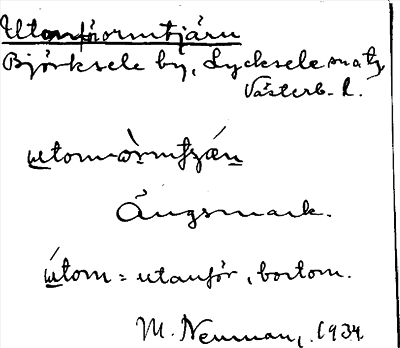 Utomörmtjärn
Björksele by, Lycksele sn
Västerb. l.
utomörmtzǽn
Ängsmark.
útom = utanför, bortom.
M. Neuman, 1934